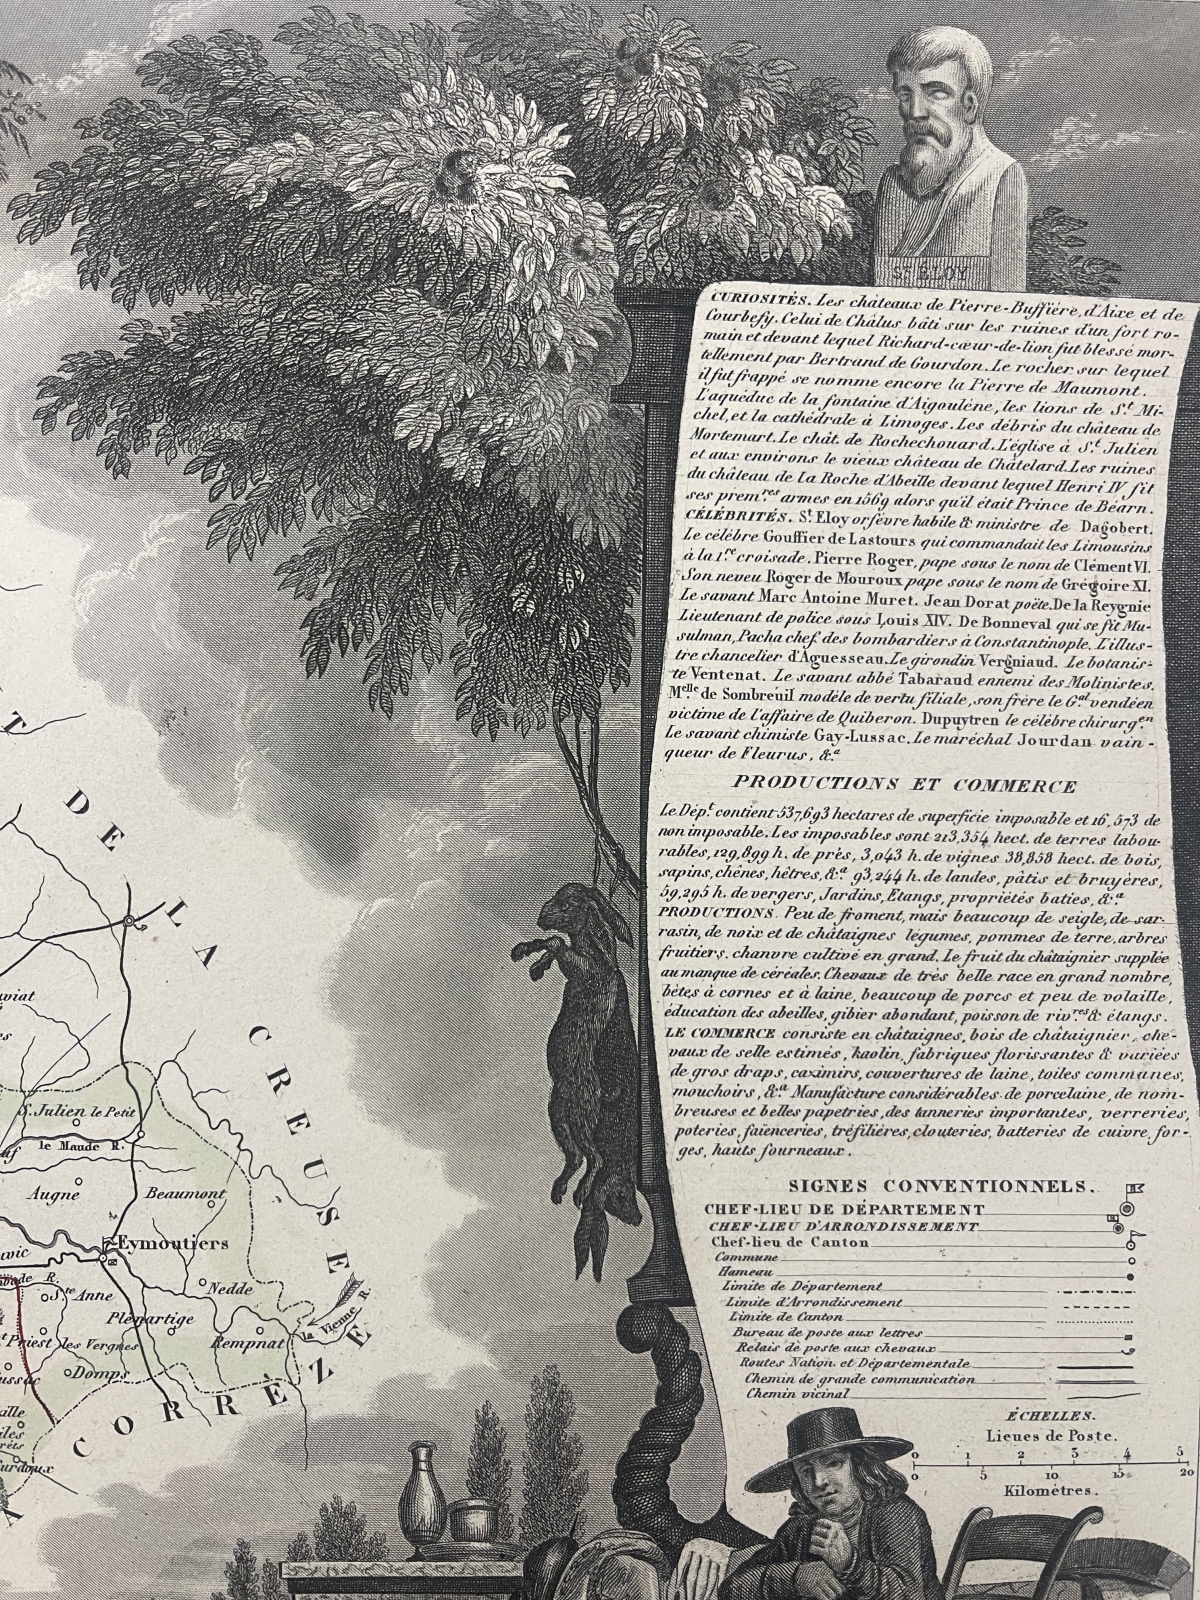 St ELOY
CURIOSITÉS. Les châteaux de Pierre-Buffière, d'Aixe et de
Courbefy. Celui de Châlus bâti sur les ruines d'un fort ro-
main et devant lequel Richard-cœur-de-lion fut blessé mor-
tellement par Bertrand de Gourdon. Le rocher sur lequel
il fut frappé se nomme encore la Pierre de Maumont.
L'aquéduc de la fontaine d'Aigoulène, les lions de St. Mi-
chel, et la cathédrale à Limoges. Les débris du château de
Mortemart. Le chât. de Rochechouard. L'église à St. Julien
et aux environs le vieux château de Châtelard. Les ruines
du château de La Roche d'Abeille devant lequel Henri IV fit
ses prem.res armes en 1569 alors qu'il était Prince de Béarn.
CÉLÉBRITÉS. St. Eloy orfèvre habile & ministre de Dagobert.
Le célèbre Gouffier de Lastours qui commandait les Limousins
à la 1.re croisade. Pierre Roger, pape sous le nom de Clément VI.
Son neveu Roger de Mouroux pape sous le nom de Grégoire XI.
Le savant Marc Antoine Muret. Jean Dorat poëte. De la Reygnie
Lieutenant de police sous Louis XIV. De Bonneval qui se fit Mu-
sulman, Pacha chef des bombardiers à Constantinople. L'illus-
tre chancelier d'Aguesseau. Le girondin Vergniaud. Le botanis-
te Ventenat. Le savant abbé Tabaraud ennemi des Molinistes.
M.elle de Sombreuil modèle de vertu filiale, son frère le G.al vendéen
victime de l'affaire de Quiberon. Dupuytren le célèbre chirurg.en
Le savant chimiste Gay-Lussac. Le maréchal Jourdan vain-
queur de Fleurus, &.a
PRODUCTIONS ET COMMERCE
Le Dép.t contient 537,693 hectares de superficie imposable et 16,573 de
non imposable. Les imposables sont 213,354 hect. de terres labou-
rables, 129,899 h. de prés, 3,043 h. de vignes 38,858 hect. de bois,
sapins, chênes, hêtres, &.a 93,244 h. de landes, pâtis et bruyères,
59,295 h. de vergers, Jardins, Etangs, propriétés baties, &.a
PRODUCTIONS. Peu de froment, mais beaucoup de seigle, de sar-
rasin, de noix et de châtaignes légumes, pommes de terre, arbres
fruitiers, chanvre cultivé en grand. Le fruit du châtaignier supplée
au manque de céréales. Chevaux de très belle race en grand nombre,
bêtes à cornes et à laine, beaucoup de porcs et peu de volaille,
éducation des abeilles, gibier abondant, poisson de riv.res & étangs.
LE COMMERCE consiste en châtaignes, bois de châtaignier, che-
vaux de selle estimés, kaolin, fabriques florissantes & variées
de gros draps, caximirs, couvertures de laine, toiles communes,
mouchoirs, &.a Manufacture considérables de porcelaine, de nom-
breuses et belles papetries, des tanneries importantes, verreries,
poteries, faïenceries, tréfilières, clouteries, batteries de cuivre, for-
ges, hauts fourneaux.
SIGNES CONVENTIONNELS.
CHEF-LIEU DE DÉPARTEMENT
CHEF-LIEU D'ARRONDISSEMENT
Chef-lieu de Canton
Commune
Hameau
Limite de Département
Limite d'Arrondissement
Limite de Canton
Bureau de poste aux lettres
Relais de poste aux chevaux
Routes Nation. et Départementale
Chemin de grande communication
Chemin vicinal
ÉCHELLES.
Lieues de Poste.
0 1 2 3 4 5
0 5 10 15 20
Kilomètres.
T DE LA CREUSE
CORRÈZE
S. Julien le Petit
le Maude R.
Augne
Beaumont
Eymoutiers
Nedde
Ste Anne
Plénartige
Rempnat
la Vienne R.
Priest les Vergnes
Domps